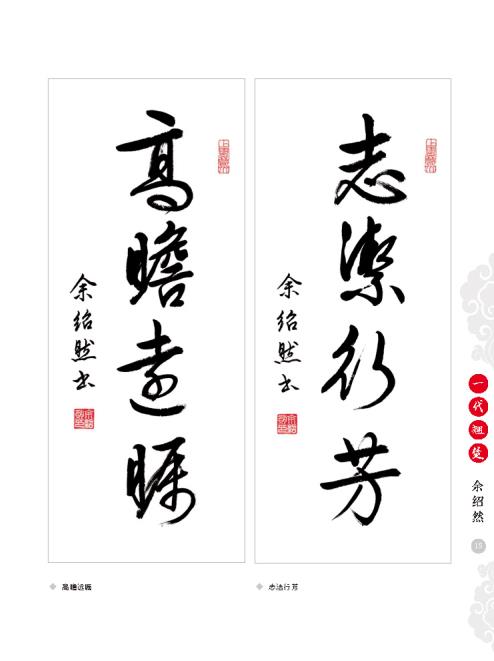 志潔行芳
余绍然书
高瞻遠瞩
余绍然书
高瞻远瞩
志洁行芳
一代翘楚
余绍然
15